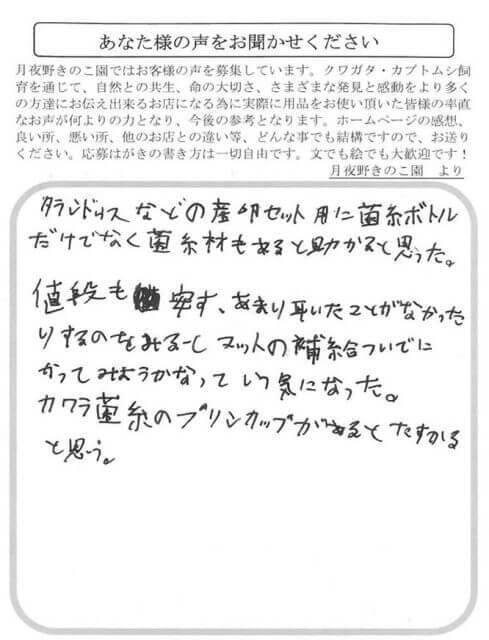 あなた様の声をお聞かせください
月夜野きのこ園ではお客様の声を募集しています。クワガタ・カブトムシ飼
育を通じて、自然との共生、命の大切さ、さまざまな発見と感動をより多く
の方達にお伝え出来るお店になる為に実際に用品をお使い頂いた皆様の率直
なお声が何よりの力となり、今後の参考となります。ホームページの感想、
良い所、悪い所、他のお店との違い等、どんな事でも結構ですので、お送り
ください。応募はがきの書き方は一切自由です。文でも絵でも大歓迎です！
月夜野きのこ園　より
タランドゥスなどの産卵セット用に菌糸ボトル
だけでなく菌糸材もあると助かると思った。
値段も安す、あまり聞いたことがなかった
りするのをみると、マットの補給ついでに
かってみようかなっていう気になった。
カワラ菌糸のプリンカップがあるとたすかる
と思う。